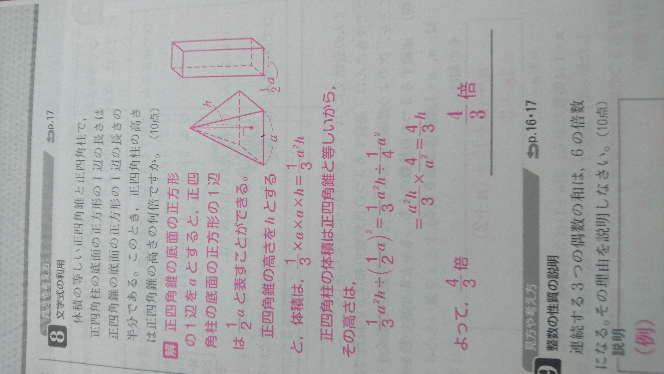 8 文字式の利用 p.17
体積の等しい正四角錐と正四角柱で，
正四角柱の底面の正方形の1辺の長さは
正四角錐の底面の正方形の1辺の長さの
半分である。このとき，正四角柱の高さ
は正四角錐の高さの何倍ですか。(10点)
解 正四角錐の底面の正方形
の1辺をaとすると，正四
角柱の底面の正方形の1辺
は 1/2 a と表すことができる。
正四角錐の高さをhとする
と，体積は，1/3×a×a×h=1/3 a²h
正四角柱の体積は正四角錐と等しいから，
その高さは，
1/3 a²h÷(1/2 a)²=1/3 a²h÷1/4 a²
=a²h/3×4/a²=4/3 h
よって，4/3 倍
4/3 倍
h
a
1/2 a
見方や考え方
9 整数の性質の説明 p.16・17
連続する3つの偶数の和は，6の倍数
になる。その理由を説明しなさい。(10点)
説明
(例)